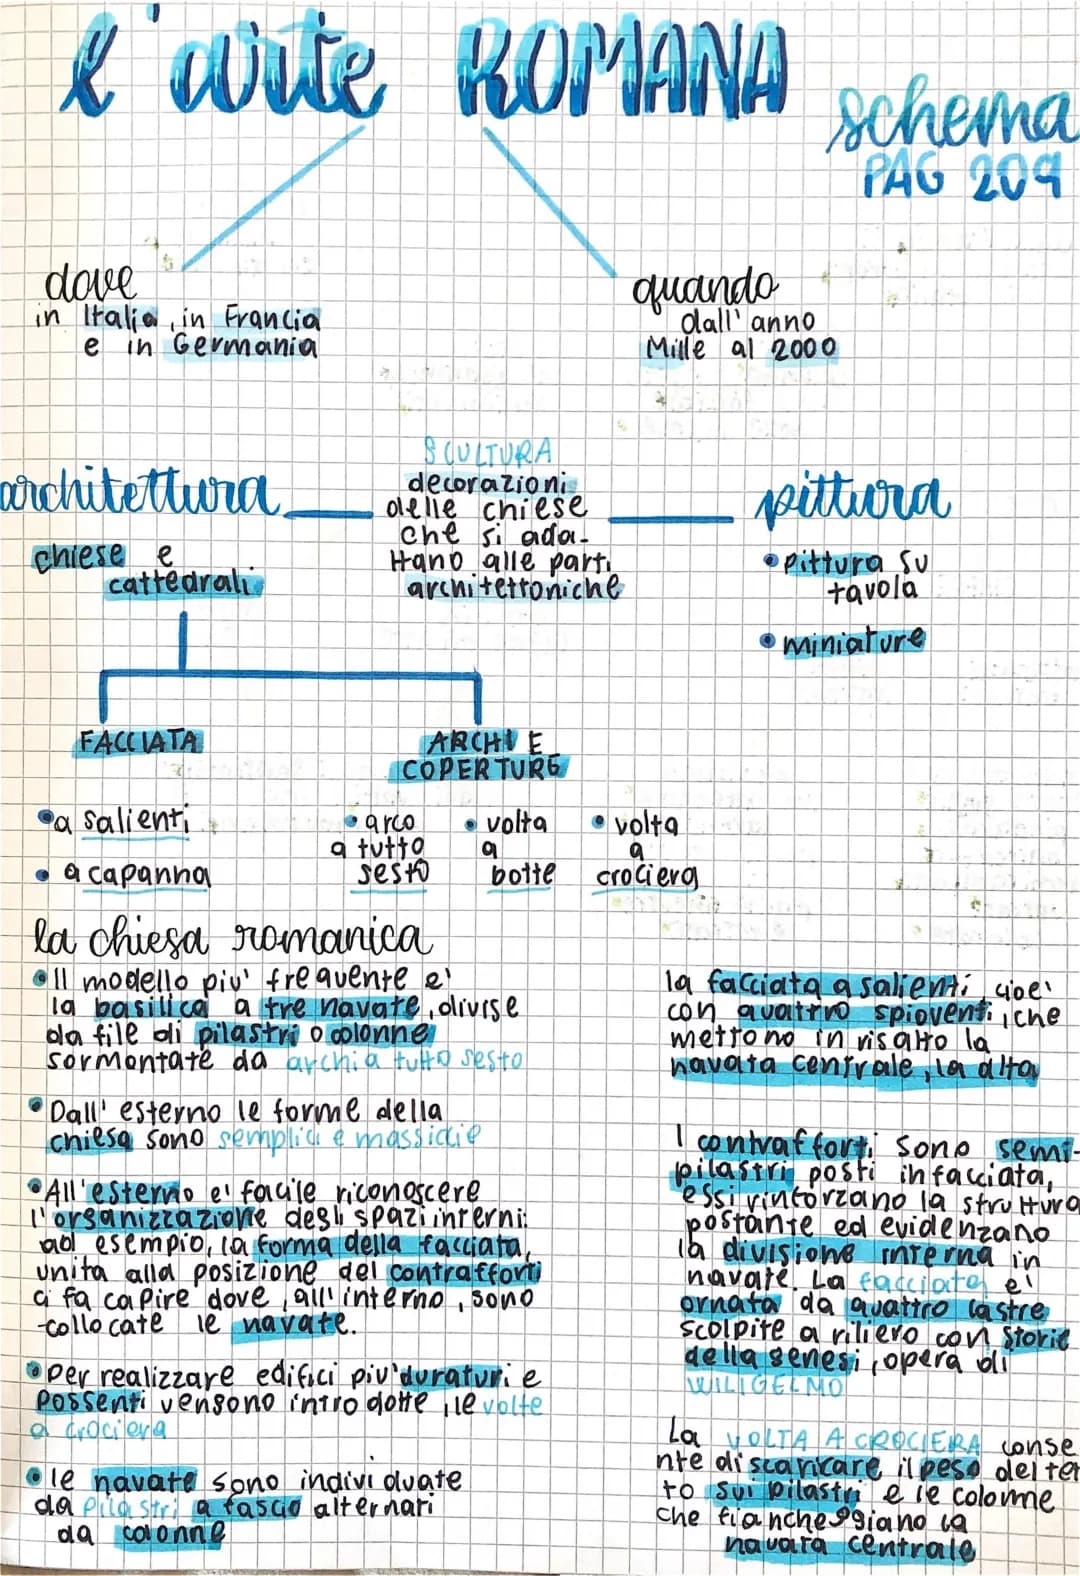 l'arte ROMANA
schema
PAG 209
dove
in Italia, in Francia
e in Germania
quando
dall'anno
Mille al 2000
architettura
chiese e
cattedrali
SCULTURA
decorazioni
delle chiese
che si ada-
ttano alle parti
architettoniche
pittura
• pittura su
tavola
• miniature
FACCIATA
ARCHI E
COPERTURE
• a salienti
• a capanna
• arco
a tutto
sesto
• volta
a
botte
• volta
a
crociera
la chiesa romanica
• Il modello piu' frequente e'
la basilica a tre navate, divise
da file di pilastri o colonne
sormontate da archi a tutto sesto
• Dall'esterno le forme della
chiesa sono semplici e massiccie
• All'esterno e' facile riconoscere
l'organizzazione degli spazi interni:
ad esempio, la forma della facciata,
unita alla posizione dei contrafforti
ci fa capire dove, all'interno, sono
collocate le navate.
• per realizzare edifici piu' duraturi e
possenti vengono introdotte, le volte
a crociera
• le navate sono individuate
da pilastri a fascio alternati
da colonne
la facciata a salienti, cioe'
con quattro spioventi, che
mettono in risalto la
navata centrale, la alta
I contrafforti sono semi-
pilastri posti in facciata,
essi rinforzano la struttura
postante ed evidenzano
la divisione interna in
navate. La facciata e'
ornata da quattro lastre
scolpite a riliero con storie
della genesi, opera di
WILIGELMO
La VOLTA A CROCIERA conse
nte di scaricare il peso del tet
to sui pilastri e le colonne
che fiancheggiano la
navata centrale